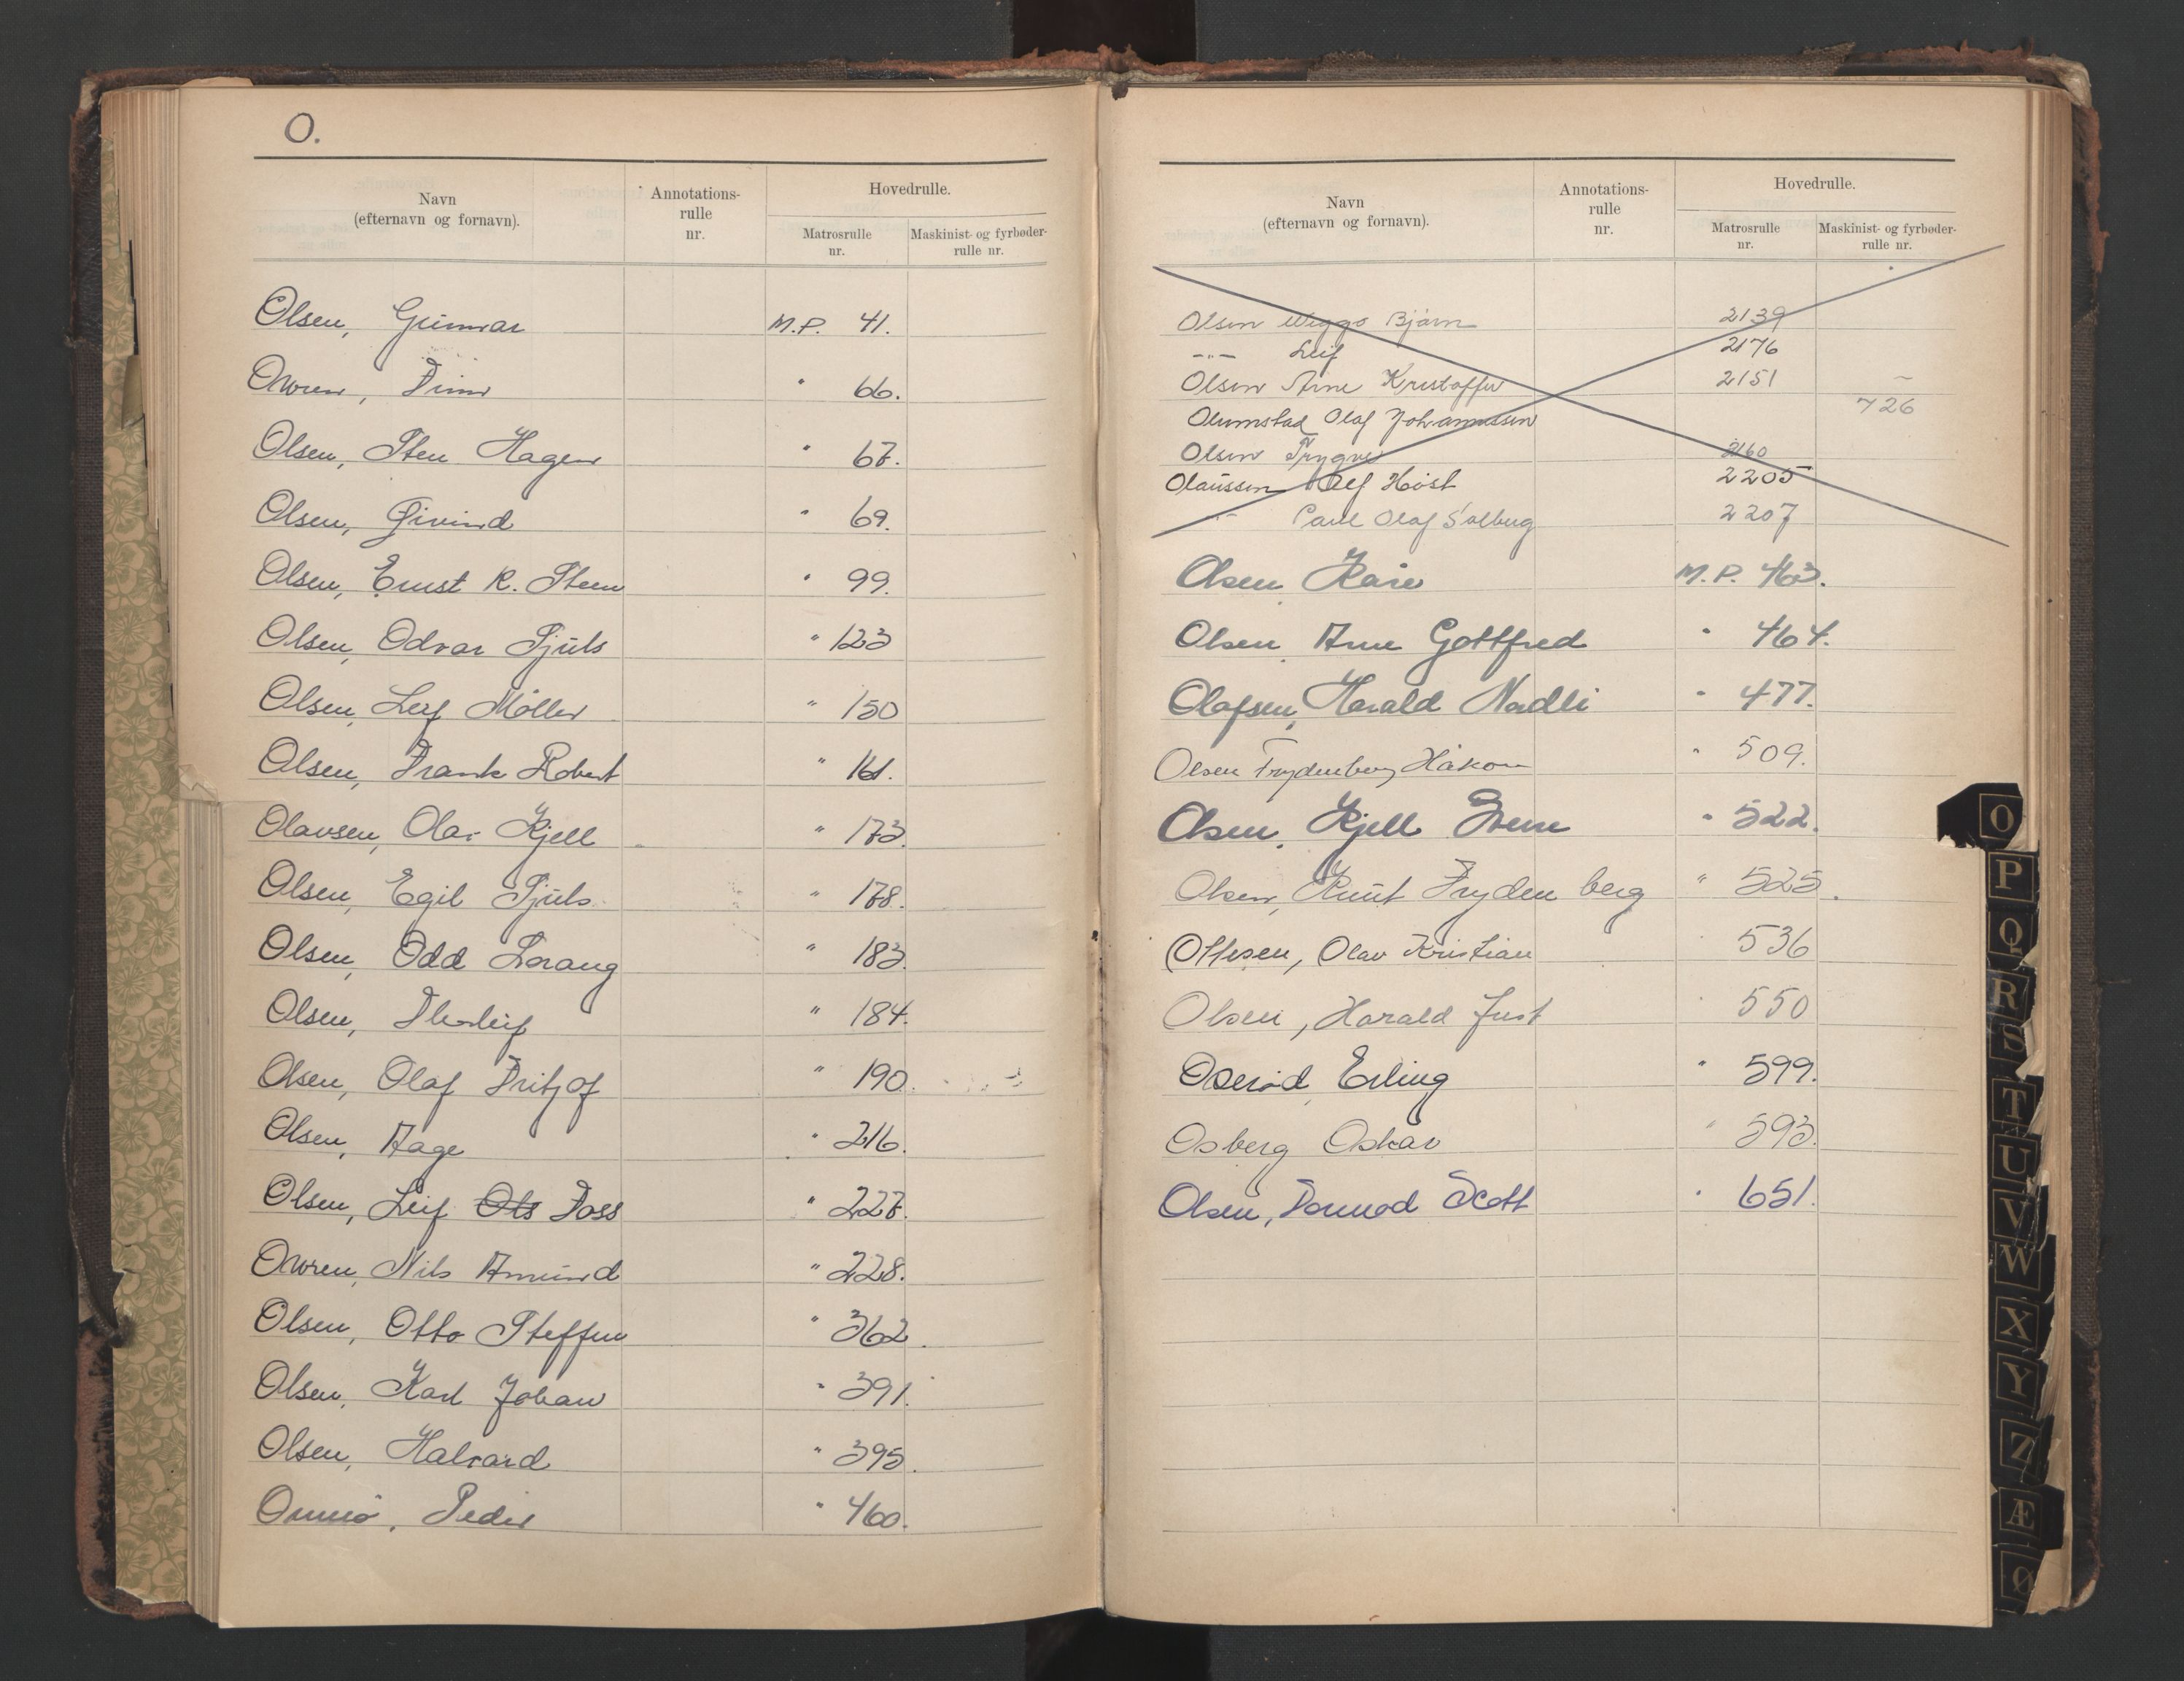 O.
Navn
(efternavn og fornavn).
Annotations-
rulle
nr.
Hovedrulle.
Matrosrulle
nr.
Maskinist- og fyrbøder-
rulle nr.
Olsen, Gunnar M.P. 41.
Owren, Finn " 66.
Olsen, Sten Hagen " 67.
Olsen, Øivind " 69.
Olsen, Ernst R. Steen " 99.
Olsen, Odvar Sjuls " 123
Olsen, Leif Möller " 150
Olsen, Frank Robert " 161.
Olavsen, Olav Kjell " 173.
Olsen, Egil Sjuls " 178.
Olsen, Odd Lorang " 183.
Olsen, Thorleif " 184.
Olsen, Olaf Fritjof " 190.
Olsen, Aage " 216.
Olsen, Leif Ols Foss " 227.
Owren, Nils Amund " 228.
Olsen, Otto Steffen " 362.
Olsen, Karl Johan " 391.
Olsen, Halvard " 395.
Peder " 460.
Navn
(efternavn og fornavn).
Annotations-
rulle
nr.
Hovedrulle.
Matrosrulle
nr.
Maskinist- og fyrbøder-
rulle nr.
Olsen Wiggo Bjørn 2139
-"- Leif 2176
Olsen Arne Kristoffer 2151
Olumstad Olaf Johannessen 726
Olsen Trygve 2160
Olaussen Alf Høist 2205
-"- Paul Olaf Solberg 2207
Olsen, Kåre M.P. 463.
Olsen, Arne Gottfred " 464.
Olafsen, Harald Nordli " 477.
Olsen Frydenberg Håkon " 509.
Olsen, Kjell Svene " 522.
Olsen, Knut Frydenberg " 525.
Ottesen, Olav Kristian 536
Olsen, Harald Just 550
Oserød, Erling " 599.
Osberg Oskar " 593.
Olsen, Tormod Scott " 651.
O
P
Q
R
S
T
U
V
W
X
Y
Z
Æ
Ø